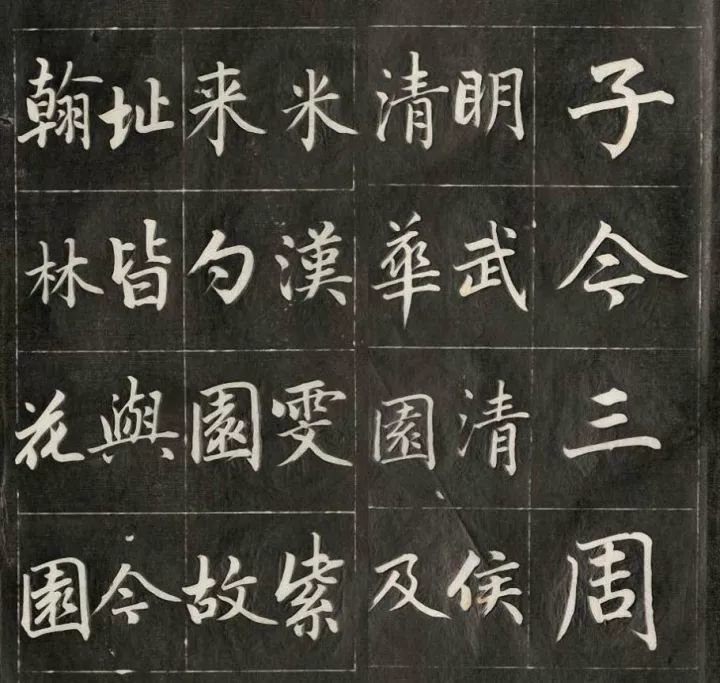 子今三周
明武清侯
清華園及
米漢雯紫
来勺園故
址皆與今
翰林花園